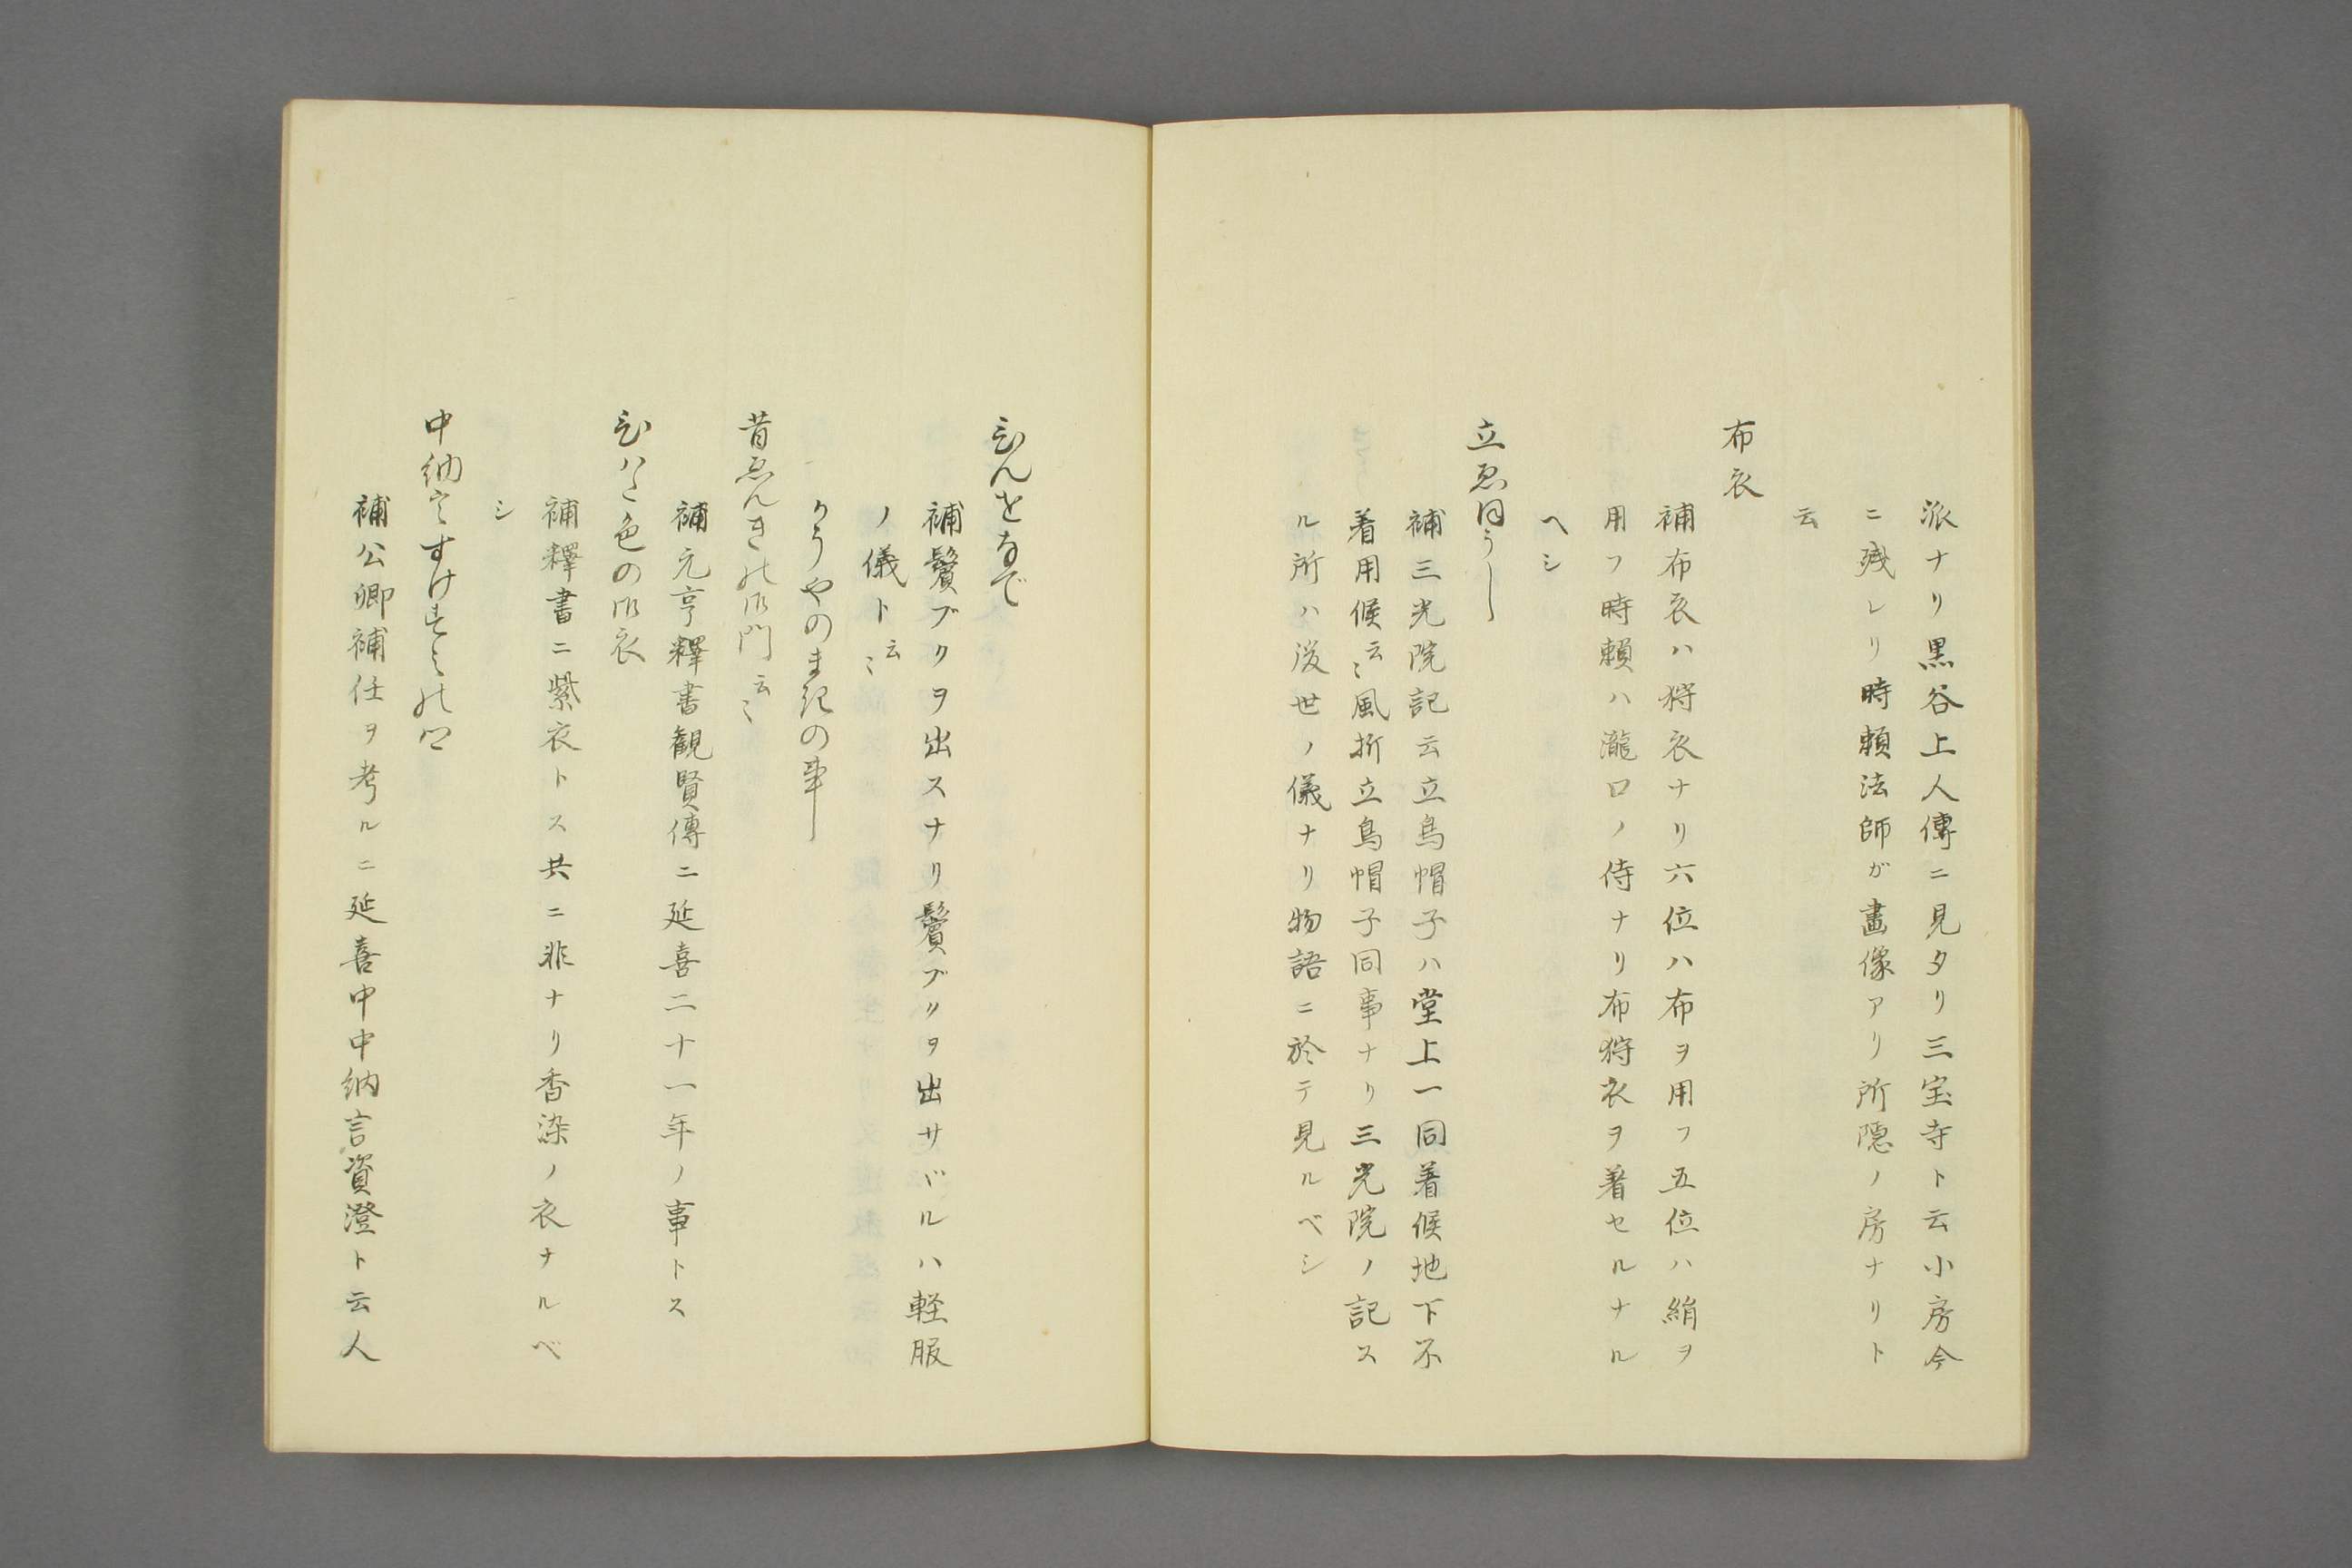 派ナリ黒谷上人傳ニ見タリ三宝寺ト云小房今
ニ残レリ時頼法師ガ畫像アリ所隠ノ房ナリト
云
布衣
補布衣ハ狩衣ナリ六位ハ布ヲ用フ五位ハ絹ヲ
用フ時頼ハ瀧口ノ侍ナリ布狩衣ヲ著セルナル
ヘシ
立ゑほうし
補三光院記云立烏帽子ハ堂上一同着候地下不
着用候云〻風折立烏帽子同事ナリ三光院ノ記ス
ル所ハ後世ノ儀ナリ物語ニ於テ見ルベシ
びんをなで
補鬢ブクヲ出スナリ鬢ブクヲ出サヾルハ軽服
ノ儀ト云〻
かうやのまきの事
昔ゑんきの御門云〻
補元亨釋書観賢傳ニ延喜二十一年ノ事トス
ひはた色の御衣
補釋書ニ紫衣トス共ニ非ナリ香染ノ衣ナルベ
シ
中納言すけすみの
補公卿補任ヲ考ルニ延喜中中納言資澄ト云人